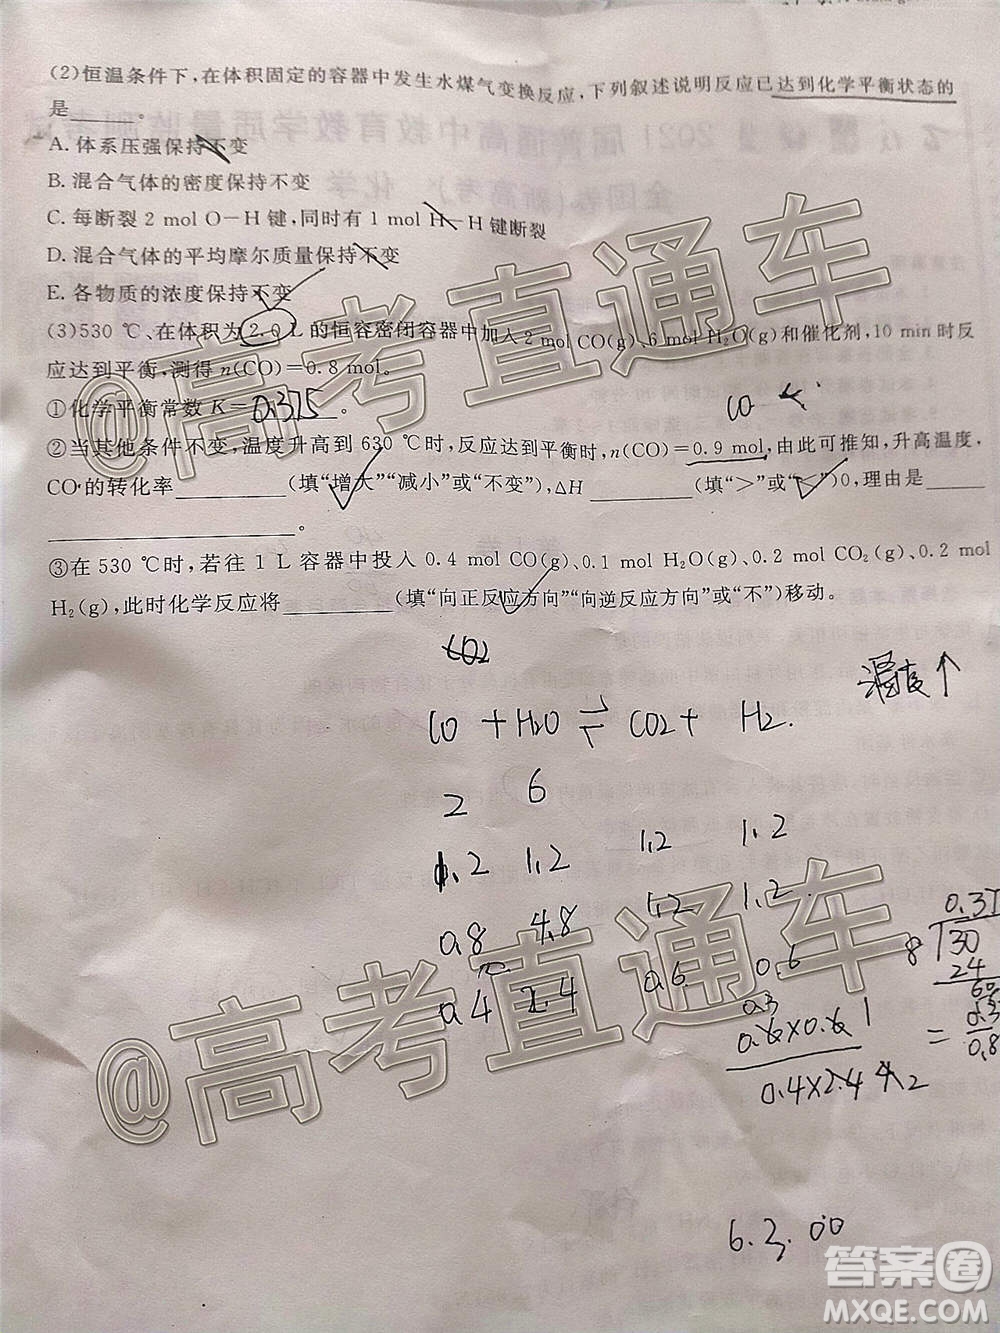 (2)恒温条件下,在体积固定的容器中发生水煤气变换反应,下列叙述说明反应已达到化学平衡状态的
是____。
A. 体系压强保持不变
B. 混合气体的密度保持不变
C. 每断裂 2 mol O-H 键,同时有 1 mol H-H 键断裂
D. 混合气体的平均摩尔质量保持不变
E. 各物质的浓度保持不变
(3)530 ℃、在体积为 2.0 L 的恒容密闭容器中加入 2 mol CO(g)、6 mol H₂O(g)和催化剂,10 min时反
应达到平衡,测得 n(CO)=0.8 mol。
①化学平衡常数 K= 0.375 。
CO
②当其他条件不变,温度升高到 630 ℃时,反应达到平衡时,n(CO)=0.9 mol,由此可推知,升高温度,
CO 的转化率________(填“增大”“减小”或“不变”),ΔH ________(填“>”或“<”)0,理由是____
____________。
③在 530 ℃时,若往 1 L 容器中投入 0.4 mol CO(g)、0.1 mol H₂O(g)、0.2 mol CO₂(g)、0.2 mol
H₂(g),此时化学反应将________(填“向正反应方向”“向逆反应方向”或“不”)移动。
CO2
温度↑
CO + H2O ⇌ CO2 + H2.
2 6
1.2 1.2 1.2 1.2
0.8 4.8 1.2 1.2
0.4 2.4 0.6 0.6
0.3
0.6×0.6 1
0.4×2.4 1.2
=
0.3
0.8
0.37
8 30
24
60
6.3.00
@高考直通车
@高考直通车
答案圈
MXQE.COM